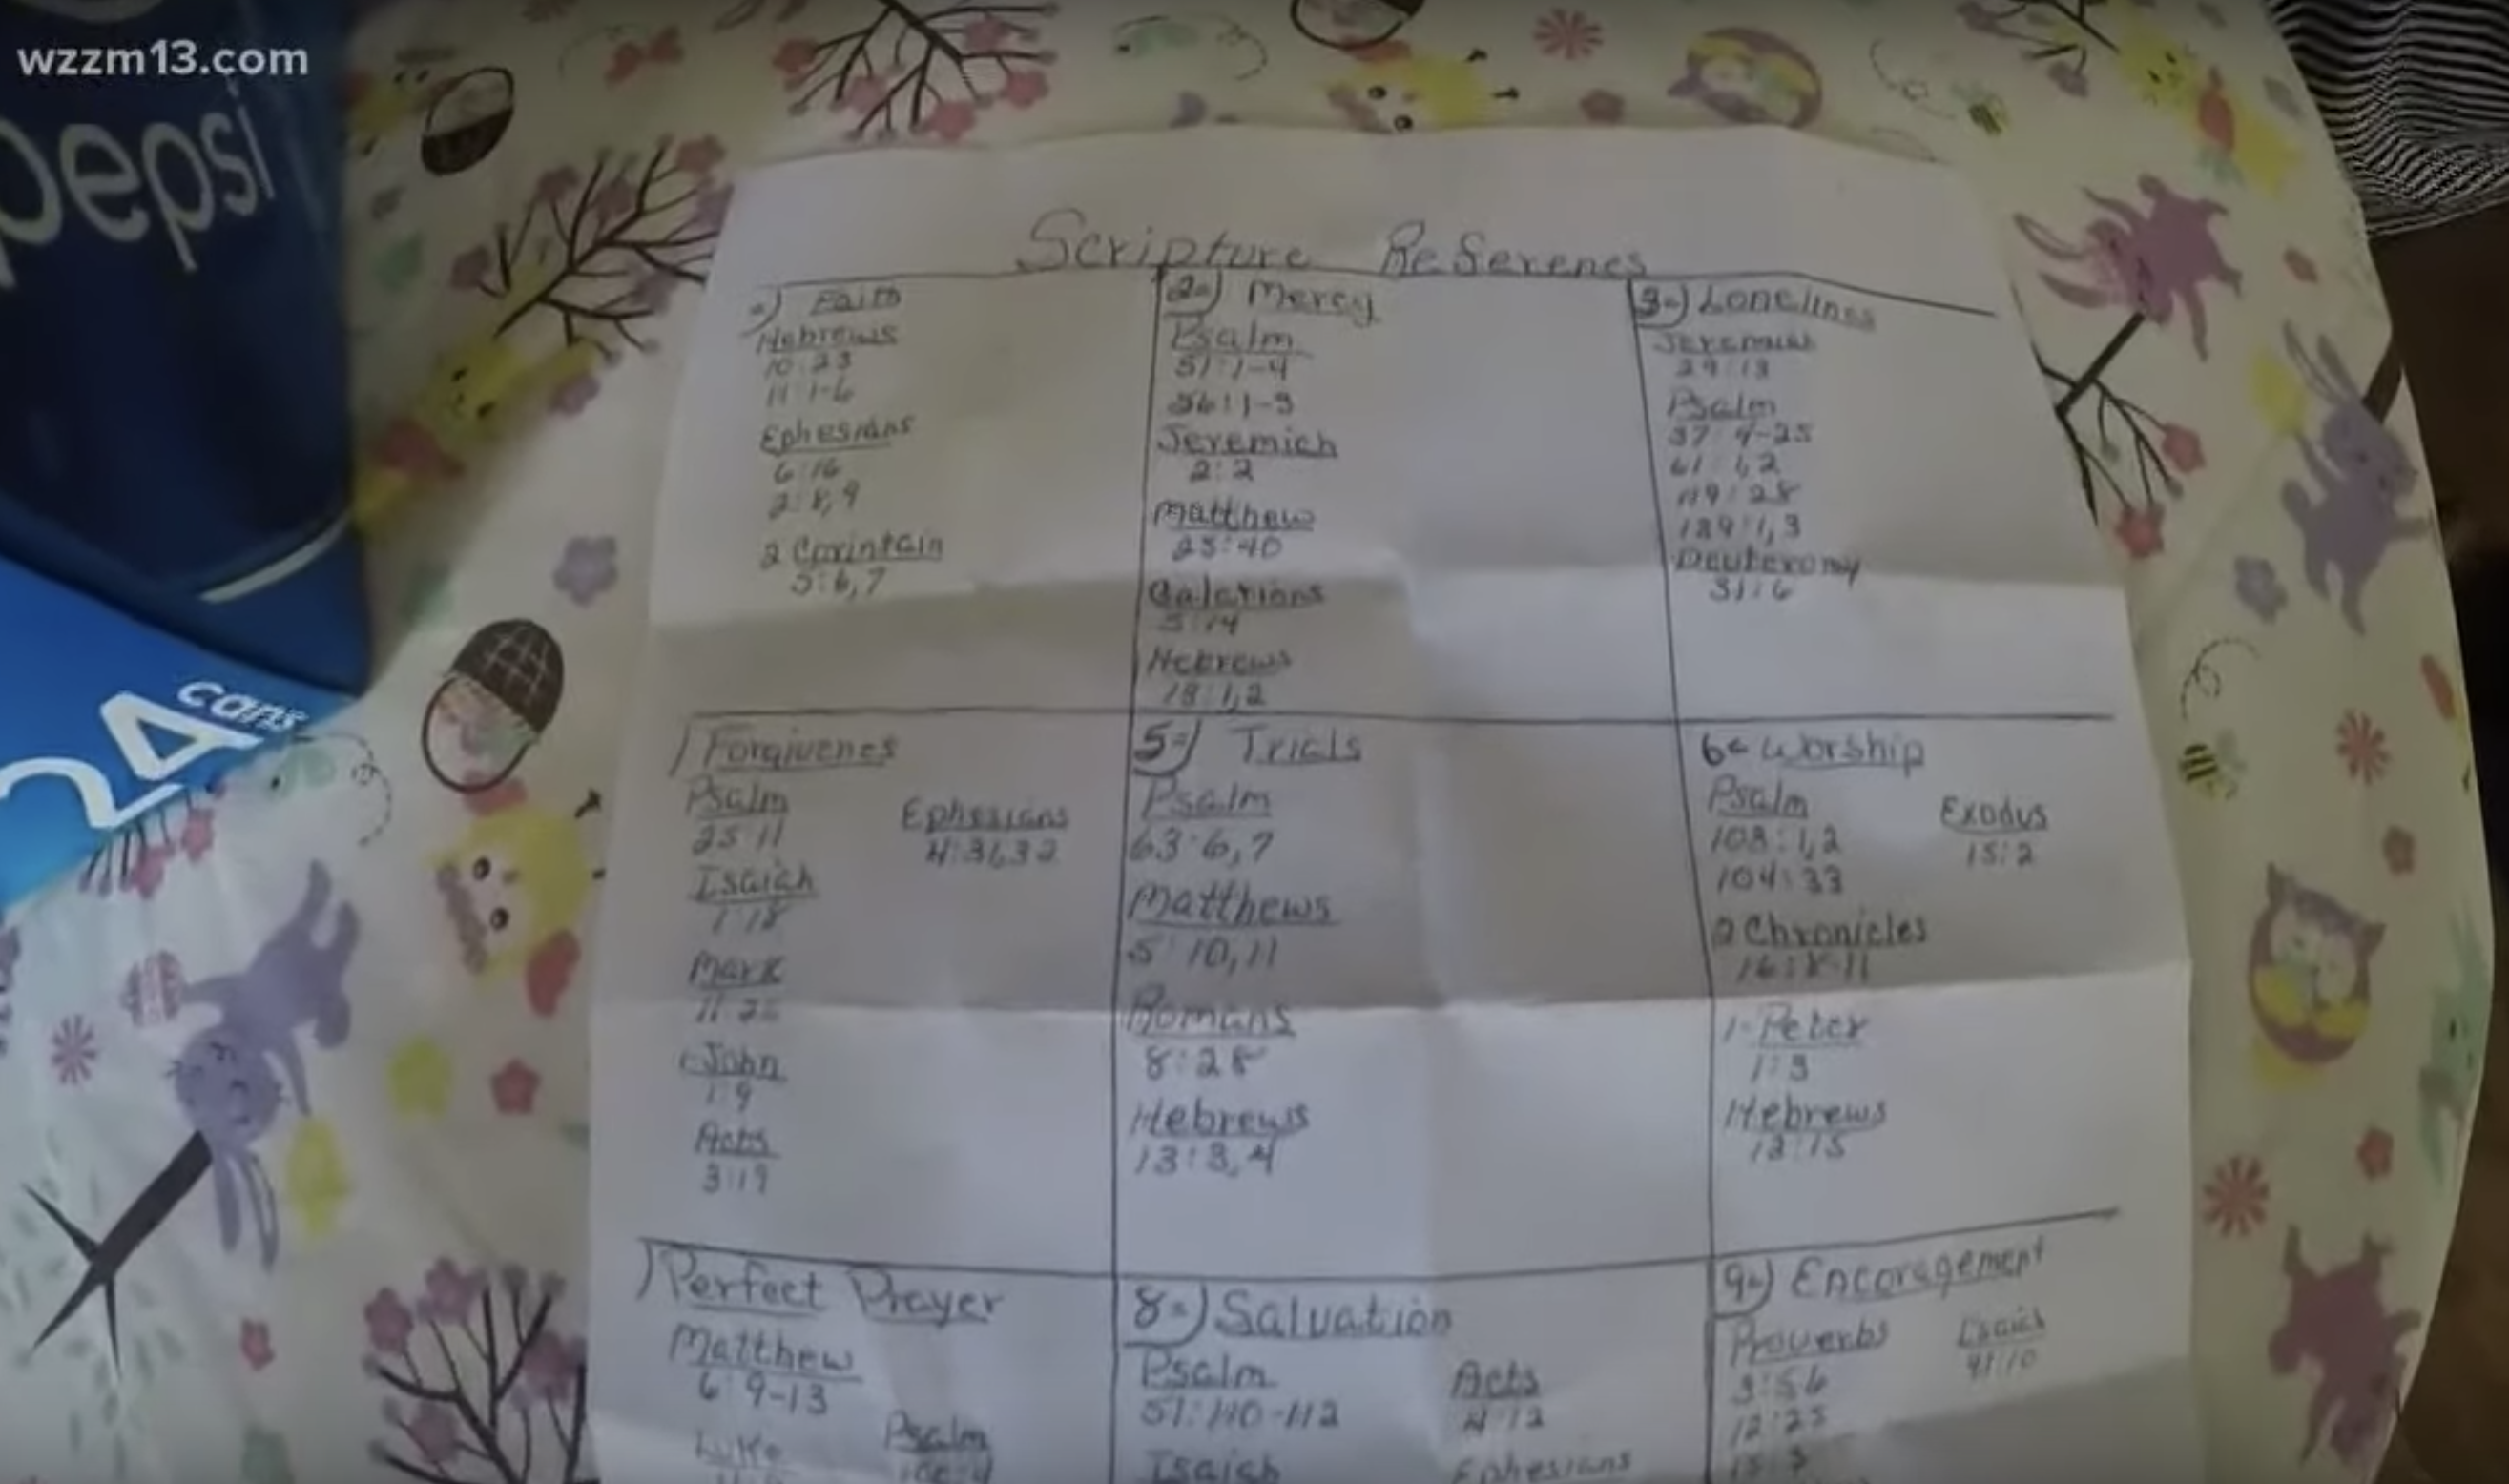 wzzm13.com
pepsi
24 cans
Scripture Reserenes
Faith
Hebrews
10:23
11:1-6
Ephesians
6:16
2:8,9
2 Corintain
5:6,7
2=) Mercy
Psalm
51:1-4
56:1-3
Jeremich
2:2
Matthew
25:40
Galatians
5:14
Hebrews
13:1,2
3=) Lonelines
Jeremias
29:13
Psalm
37:4-25
61:1,2
119:28
139:1,3
Deuteromy
31:6
) Forgivenes
Psalm
25:11
Isaiah
1:18
Mark
11:25
1 John
1:9
Acts
3:19
Ephesians
4:31,32
5=) Trials
Psalm
63:6,7
Matthews
5:10,11
Romans
8:28
Hebrews
13:3,4
6= Worship
Psalm
108:1,2
104:33
2 Chronicles
16:8-11
1-Peter
1:3
Hebrews
13:15
Exodus
15:2
) Perfect Prayer
Matthew
6:9-13
Luke
Psalm
8=) Salvation
Psalm
51:110-112
Isaiah
Acts
4:12
Ephesians
9=) Encoragement
Proverbs
3:5,6
12:25
15:3
Isaiah
41:10